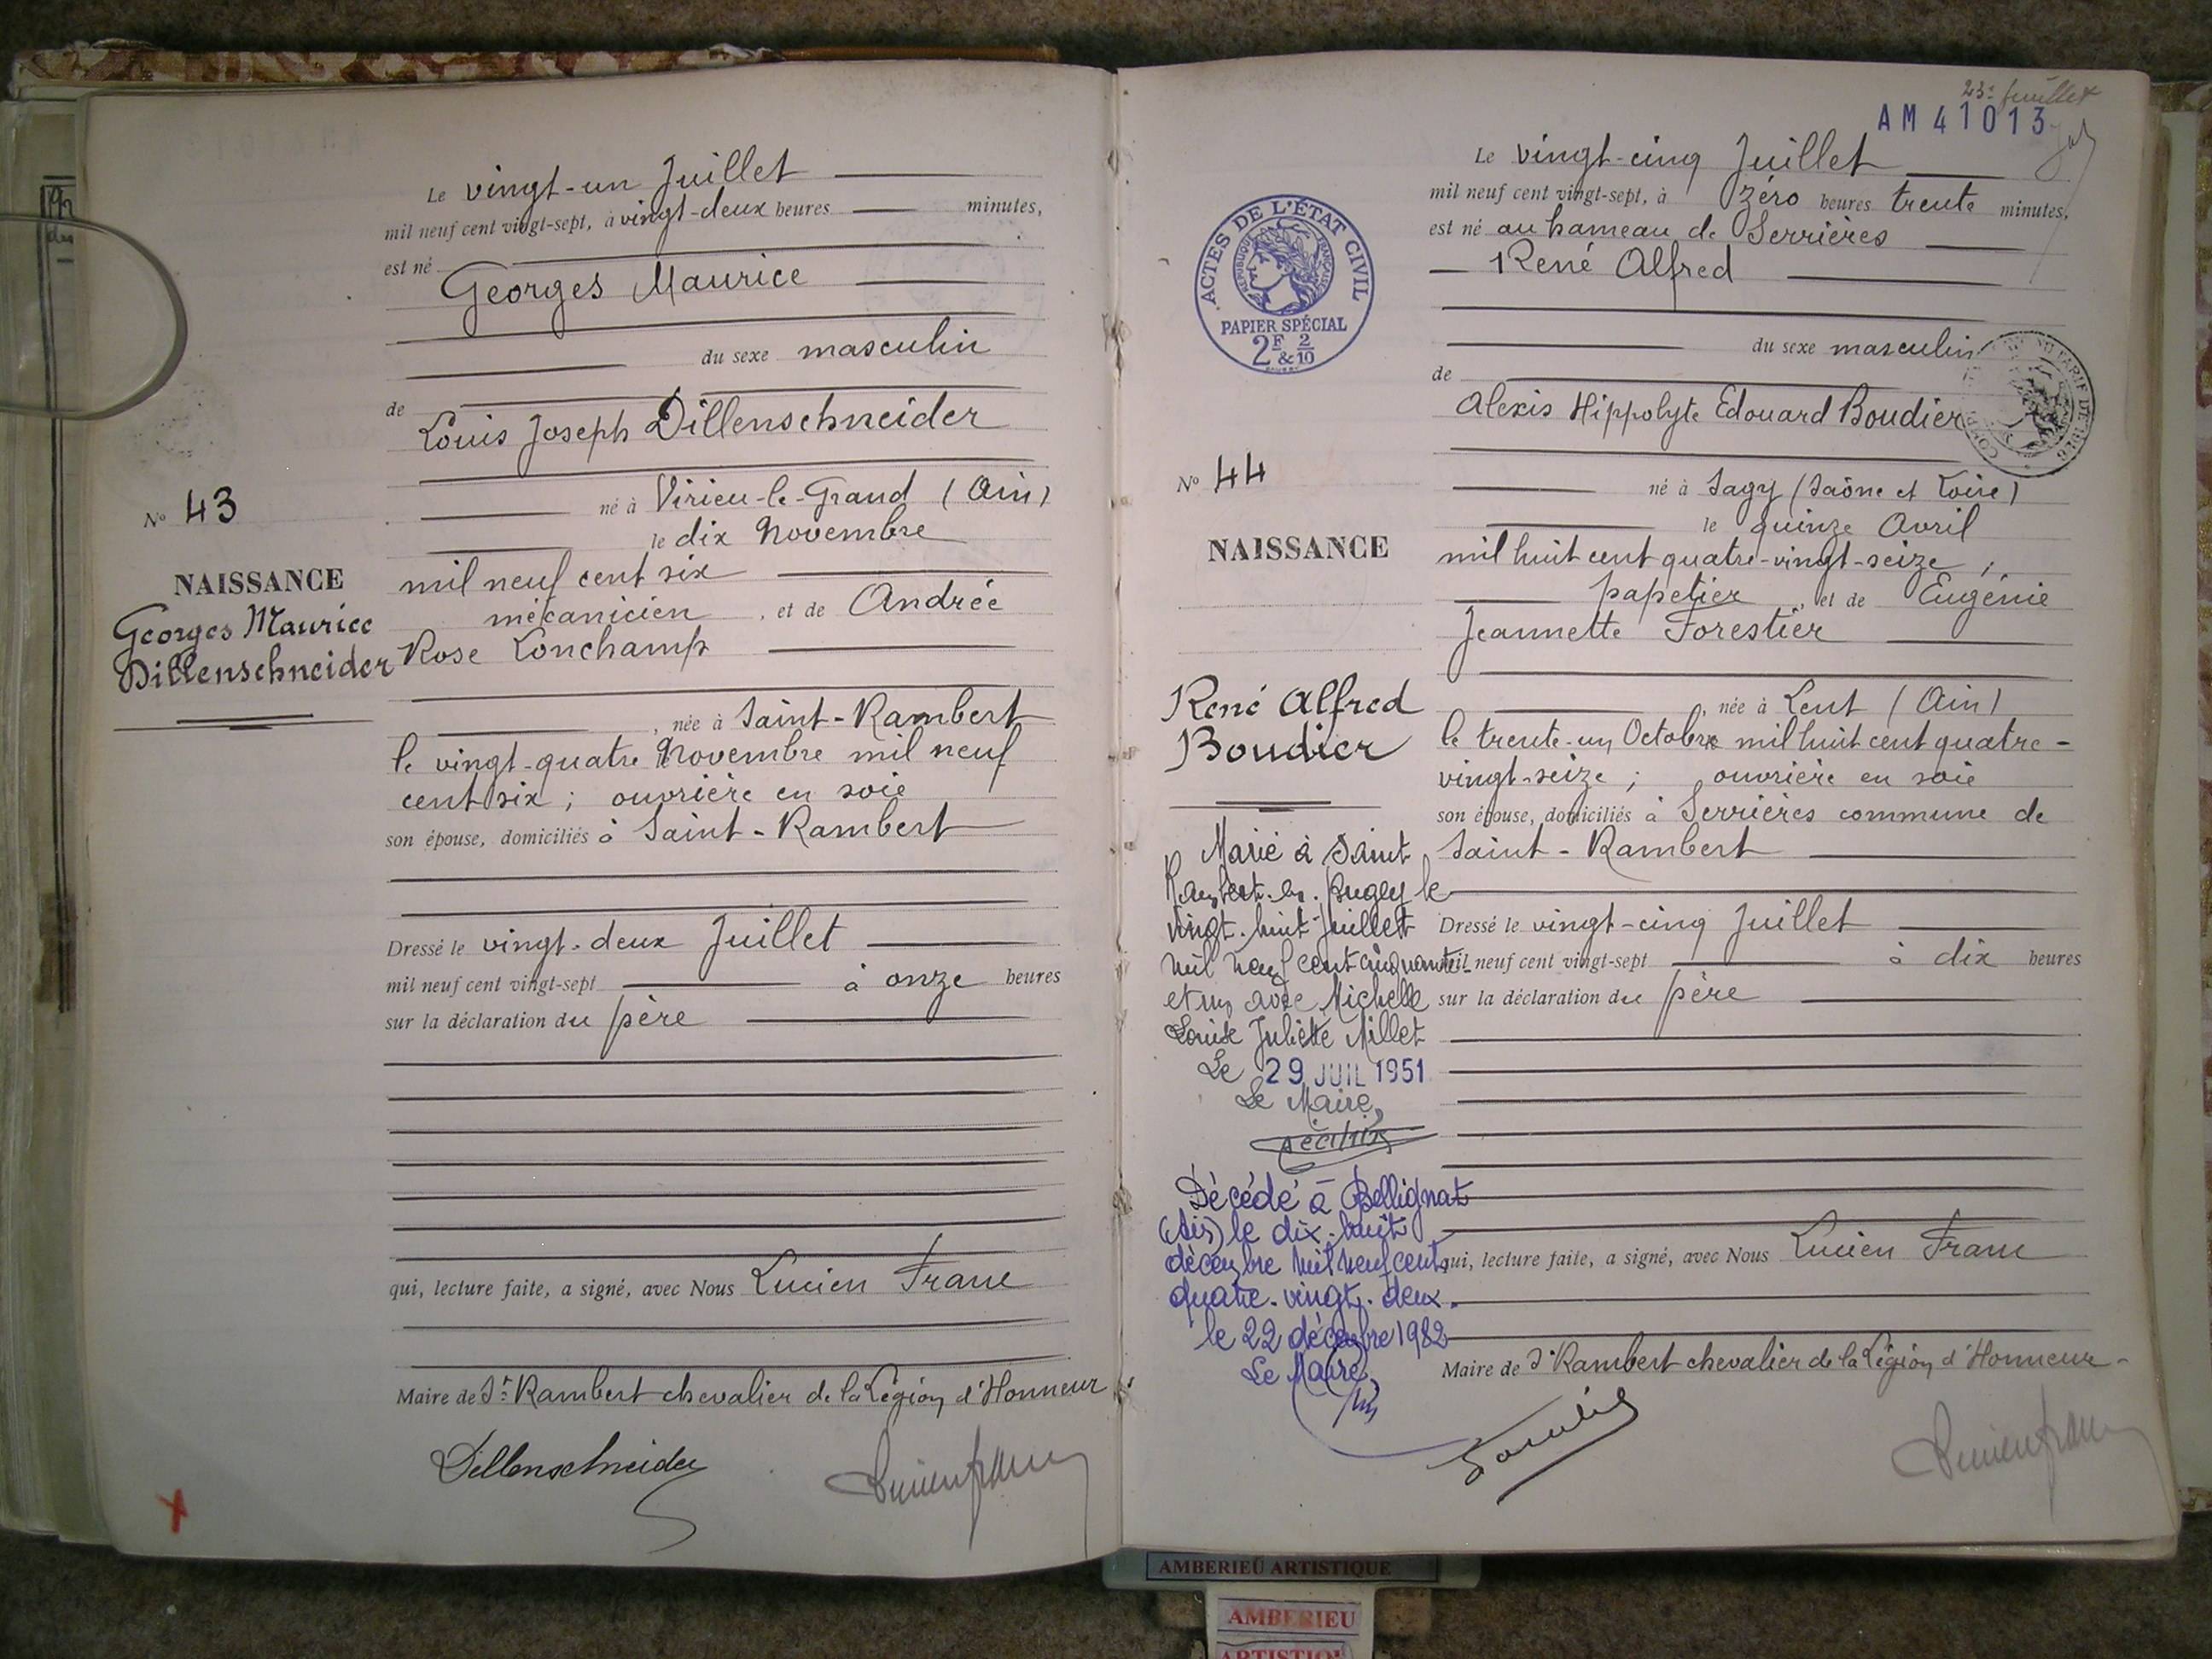 Le vingt-un Juillet
mil neuf cent vingt-sept, à vingt-deux heures minutes,
est né
Georges Maurice
du sexe masculin
de
Louis Joseph Dillenschneider
né à Virieu-le-Grand (Ain)
le dix Novembre
mil neuf cent six
mécanicien, et de Andrée
Rose Lonchamp
, née à Saint-Rambert
le vingt-quatre Novembre mil neuf
cent six ; ouvrière en soie
son épouse, domiciliés à Saint-Rambert
Dressé le vingt-deux Juillet
mil neuf cent vingt-sept à onze heures
sur la déclaration du père
qui, lecture faite, a signé, avec Nous Lucien Franc
Maire de St Rambert chevalier de la Légion d'Honneur
Dillenschneider
Lucien Franc
N° 43
NAISSANCE
Georges Maurice
Dillenschneider
23e feuillet
AM 41013
ACTES DE L'ÉTAT CIVIL
RÉPUBLIQUE FRANÇAISE
PAPIER SPÉCIAL
2F & 2/10
Le vingt-cinq Juillet
mil neuf cent vingt-sept, à Zéro heures trente minutes,
est né au hameau de Serrières
René Alfred
du sexe masculin
de
Alexis Hippolyte Edouard Boudier
né à Sagy (Saône et Loire)
le quinze Avril
mil huit cent quatre-vingt-seize ;
papetier, et de Eugénie
Jeannette Forestier
, née à Lent (Ain)
le trente-un Octobre mil huit cent quatre-
vingt-seize ; ouvrière en soie
son épouse, domiciliés à Serrières commune de
Saint-Rambert
Dressé le vingt-cinq Juillet
mil neuf cent vingt-sept à dix heures
sur la déclaration du père
qui, lecture faite, a signé, avec Nous Lucien Franc
Maire de St Rambert chevalier de la Légion d'Honneur
Lucien Franc
N° 44
NAISSANCE
René Alfred
Boudier
Marié à Saint
Rambert-en-Bugey le
vingt-huit Juillet
mil neuf cent cinquante-
et un avec Michelle
Louise Juliette Millet
Le 29 JUIL 1951
Le Maire,
Décédé à Bellignat
(Ain) le dix-huit
décembre mil neuf cent
quatre-vingt-deux.
le 22 décembre 1982
Le Maire,
AMBERIEU ARTISTIQUE
AMBERIEU
ARTISTIQUE